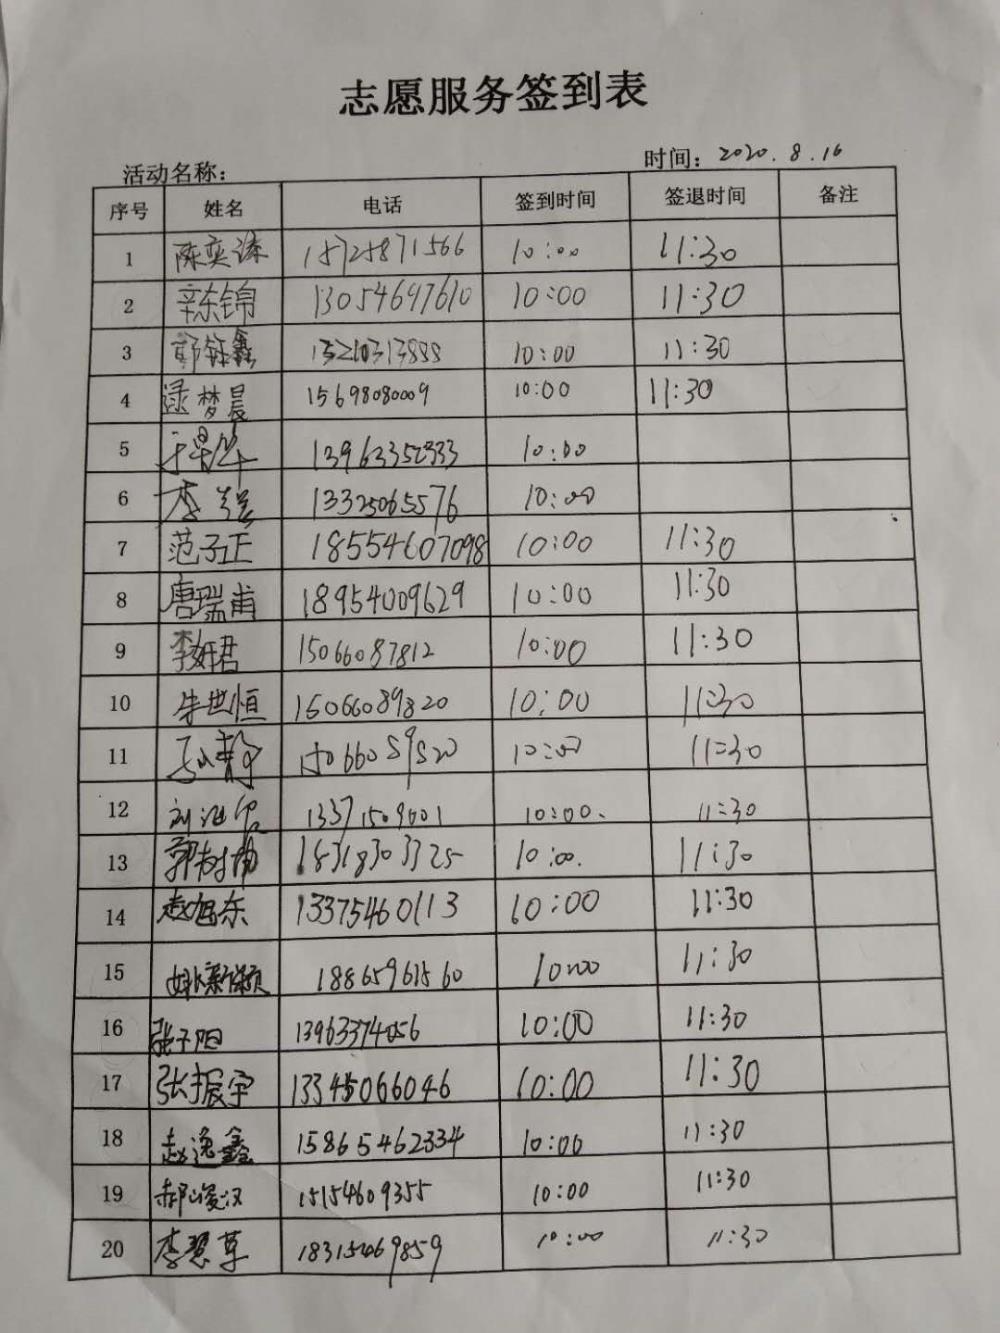 志愿服务签到表
活动名称： 时间：2020.8.16
序号 姓名 电话 签到时间 签退时间 备注
1 陈奕 15725871566 10:00 11:30
2 辛东锦 13054697610 10:00 11:30
3 郭钰鑫 15210313888 10:00 11:30
4 逯梦晨 15698080009 10:00 11:30
5 13963352333 10:00
6 李 13325065576 10:00
7 范子正 18554607098 10:00 11:30
8 唐瑞甫 18954009629 10:00 11:30
9 李妍君 15066087812 10:00 11:30
10 朱世恒 15066089820 10:00 11:30
11 静 10:00 11:30
12 刘 13371509001 10:00 11:30
13 郭树 18318303325 10:00 11:30
14 赵旭东 13375460113 10:00 11:30
15 姚新颖 18865961560 10:00 11:30
16 张子阳 13963374056 10:00 11:30
17 张振宇 13345066046 10:00 11:30
18 赵逸鑫 15865462334 10:00 11:30
19 郝峻汉 15154609355 10:00 11:30
20 李慧草 18315469859 10:00 11:30